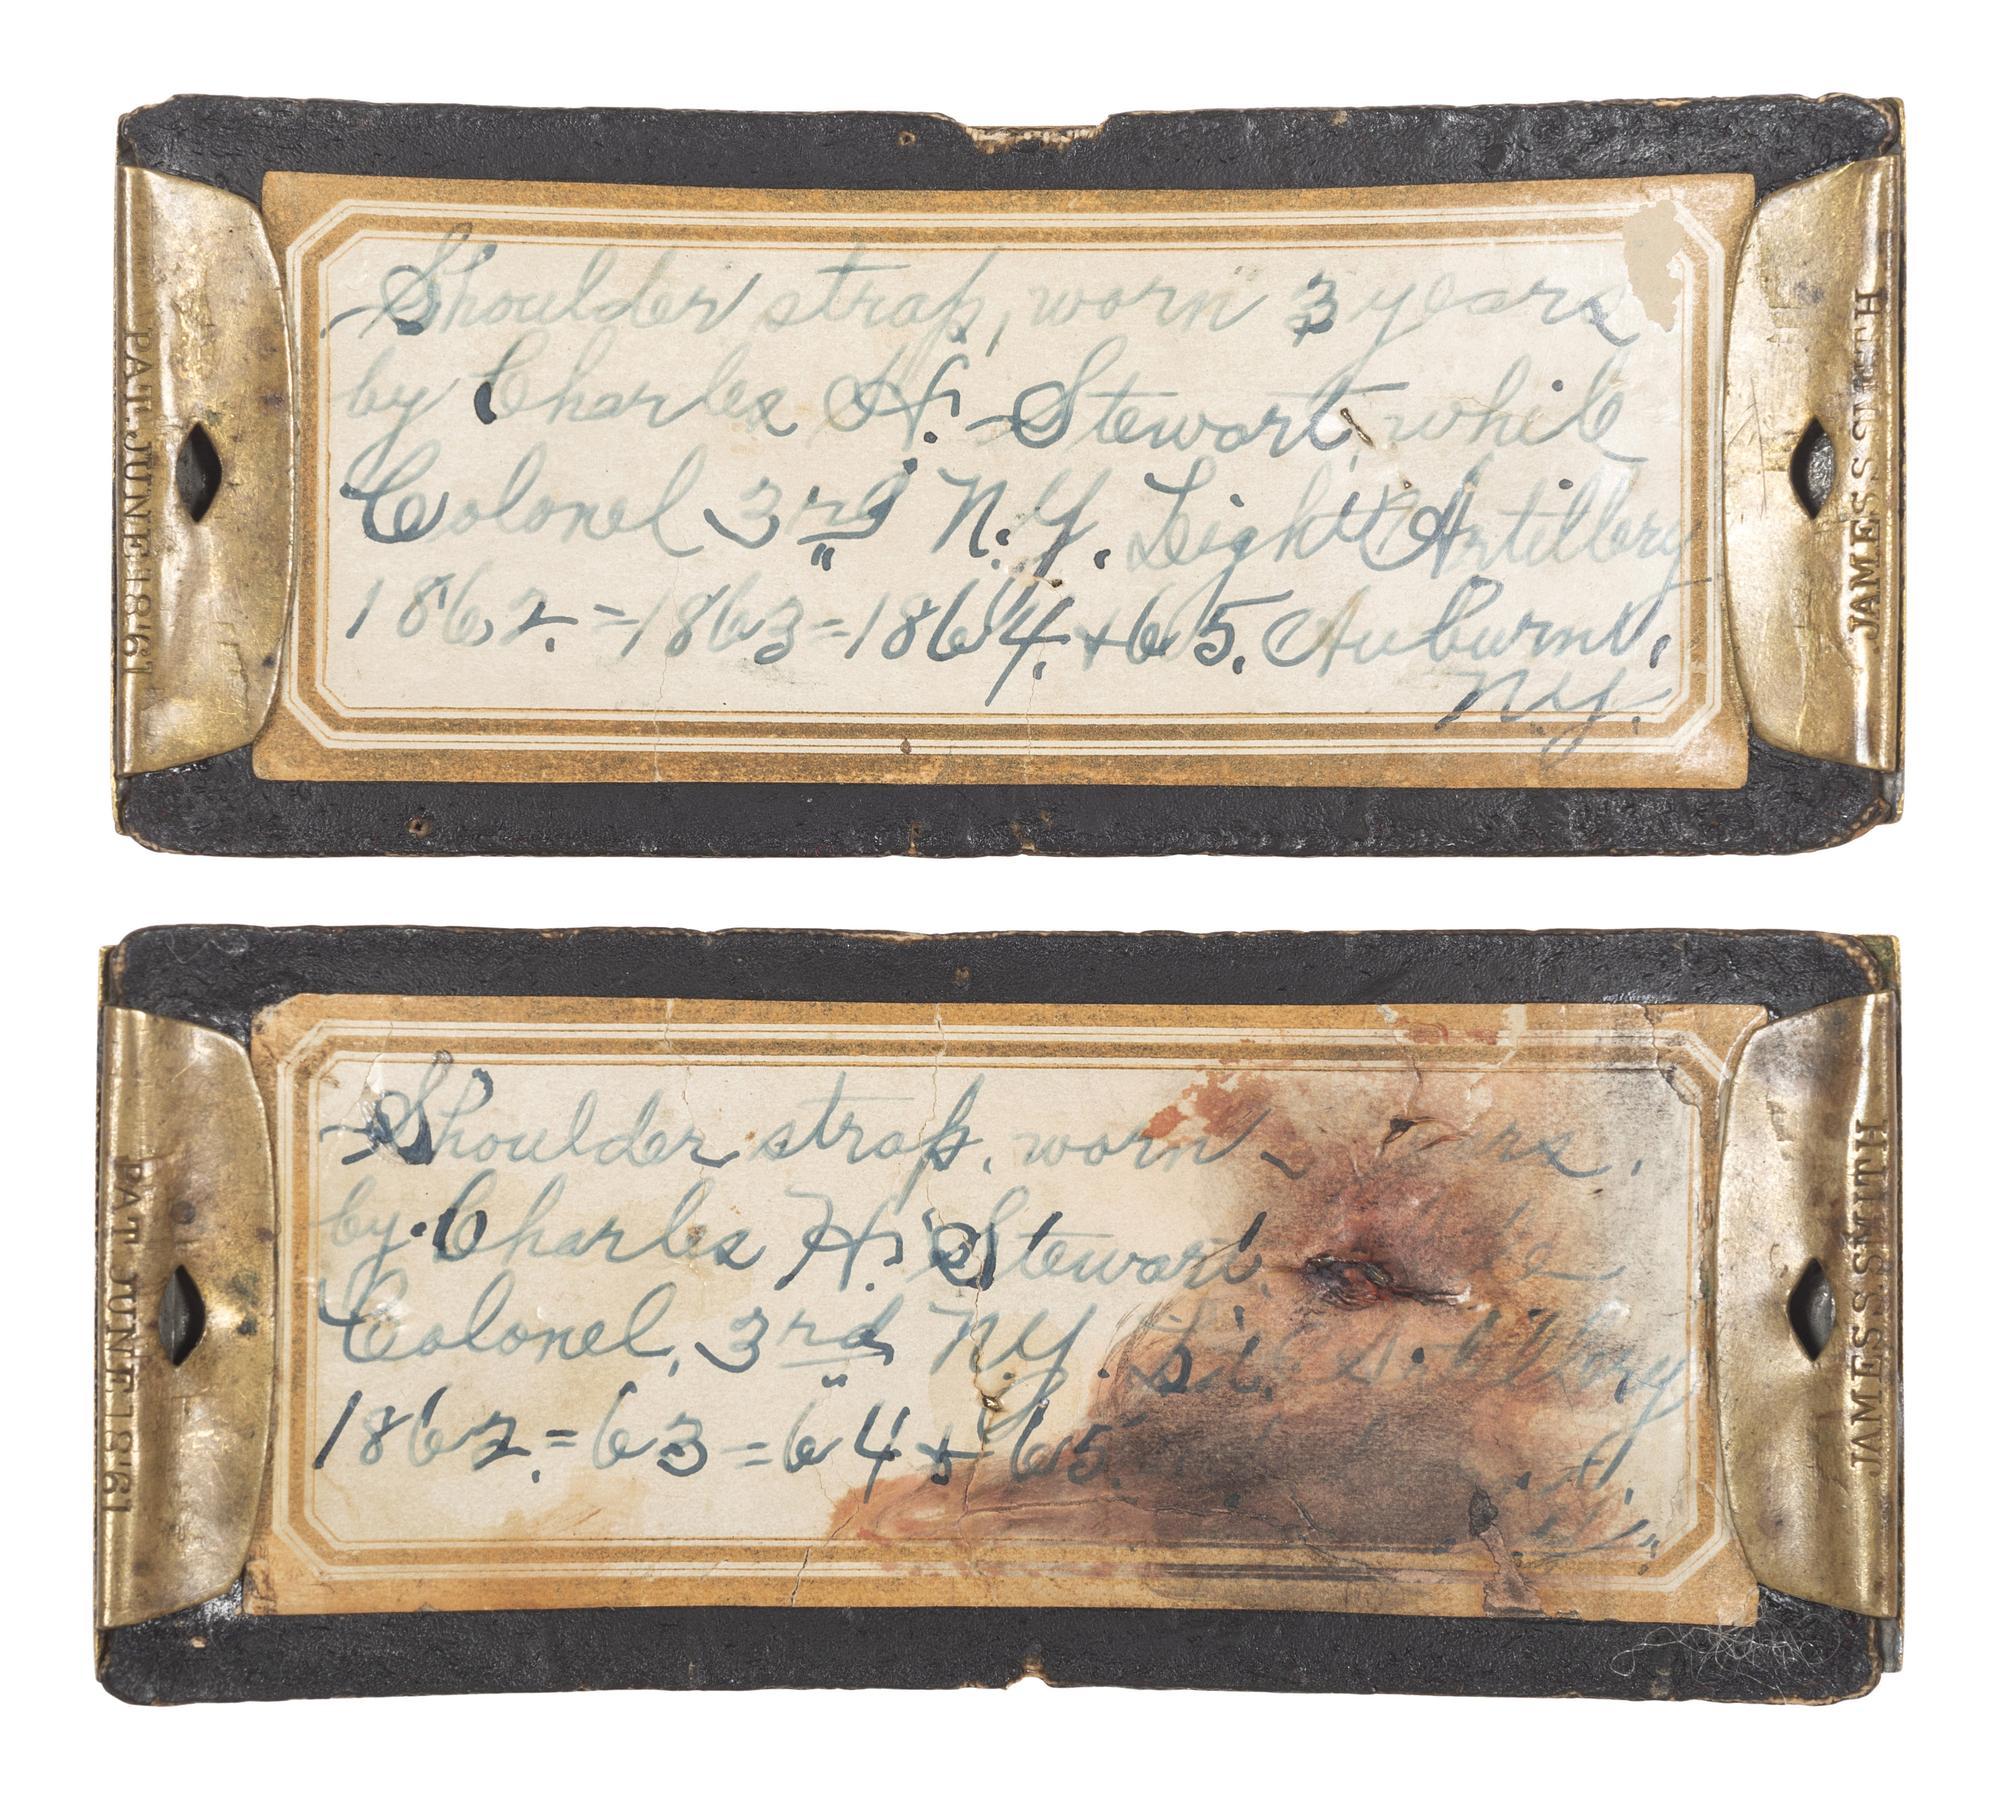 PAT. JUNE 18'61
Shoulder strap, worn 3 years
by Charles H. Stewart, while
Colonel 3rd N.Y. Light Artillery
1862.=1863=1864.+65. Auburn,
N.Y.
JAMES S. SMITH
PAT JUNE 18'61
Shoulder strap, worn
by Charles H. Stewart,
Colonel, 3rd N.Y. Artillery
1862.=63=64+65.
JAMES.S.SMITH